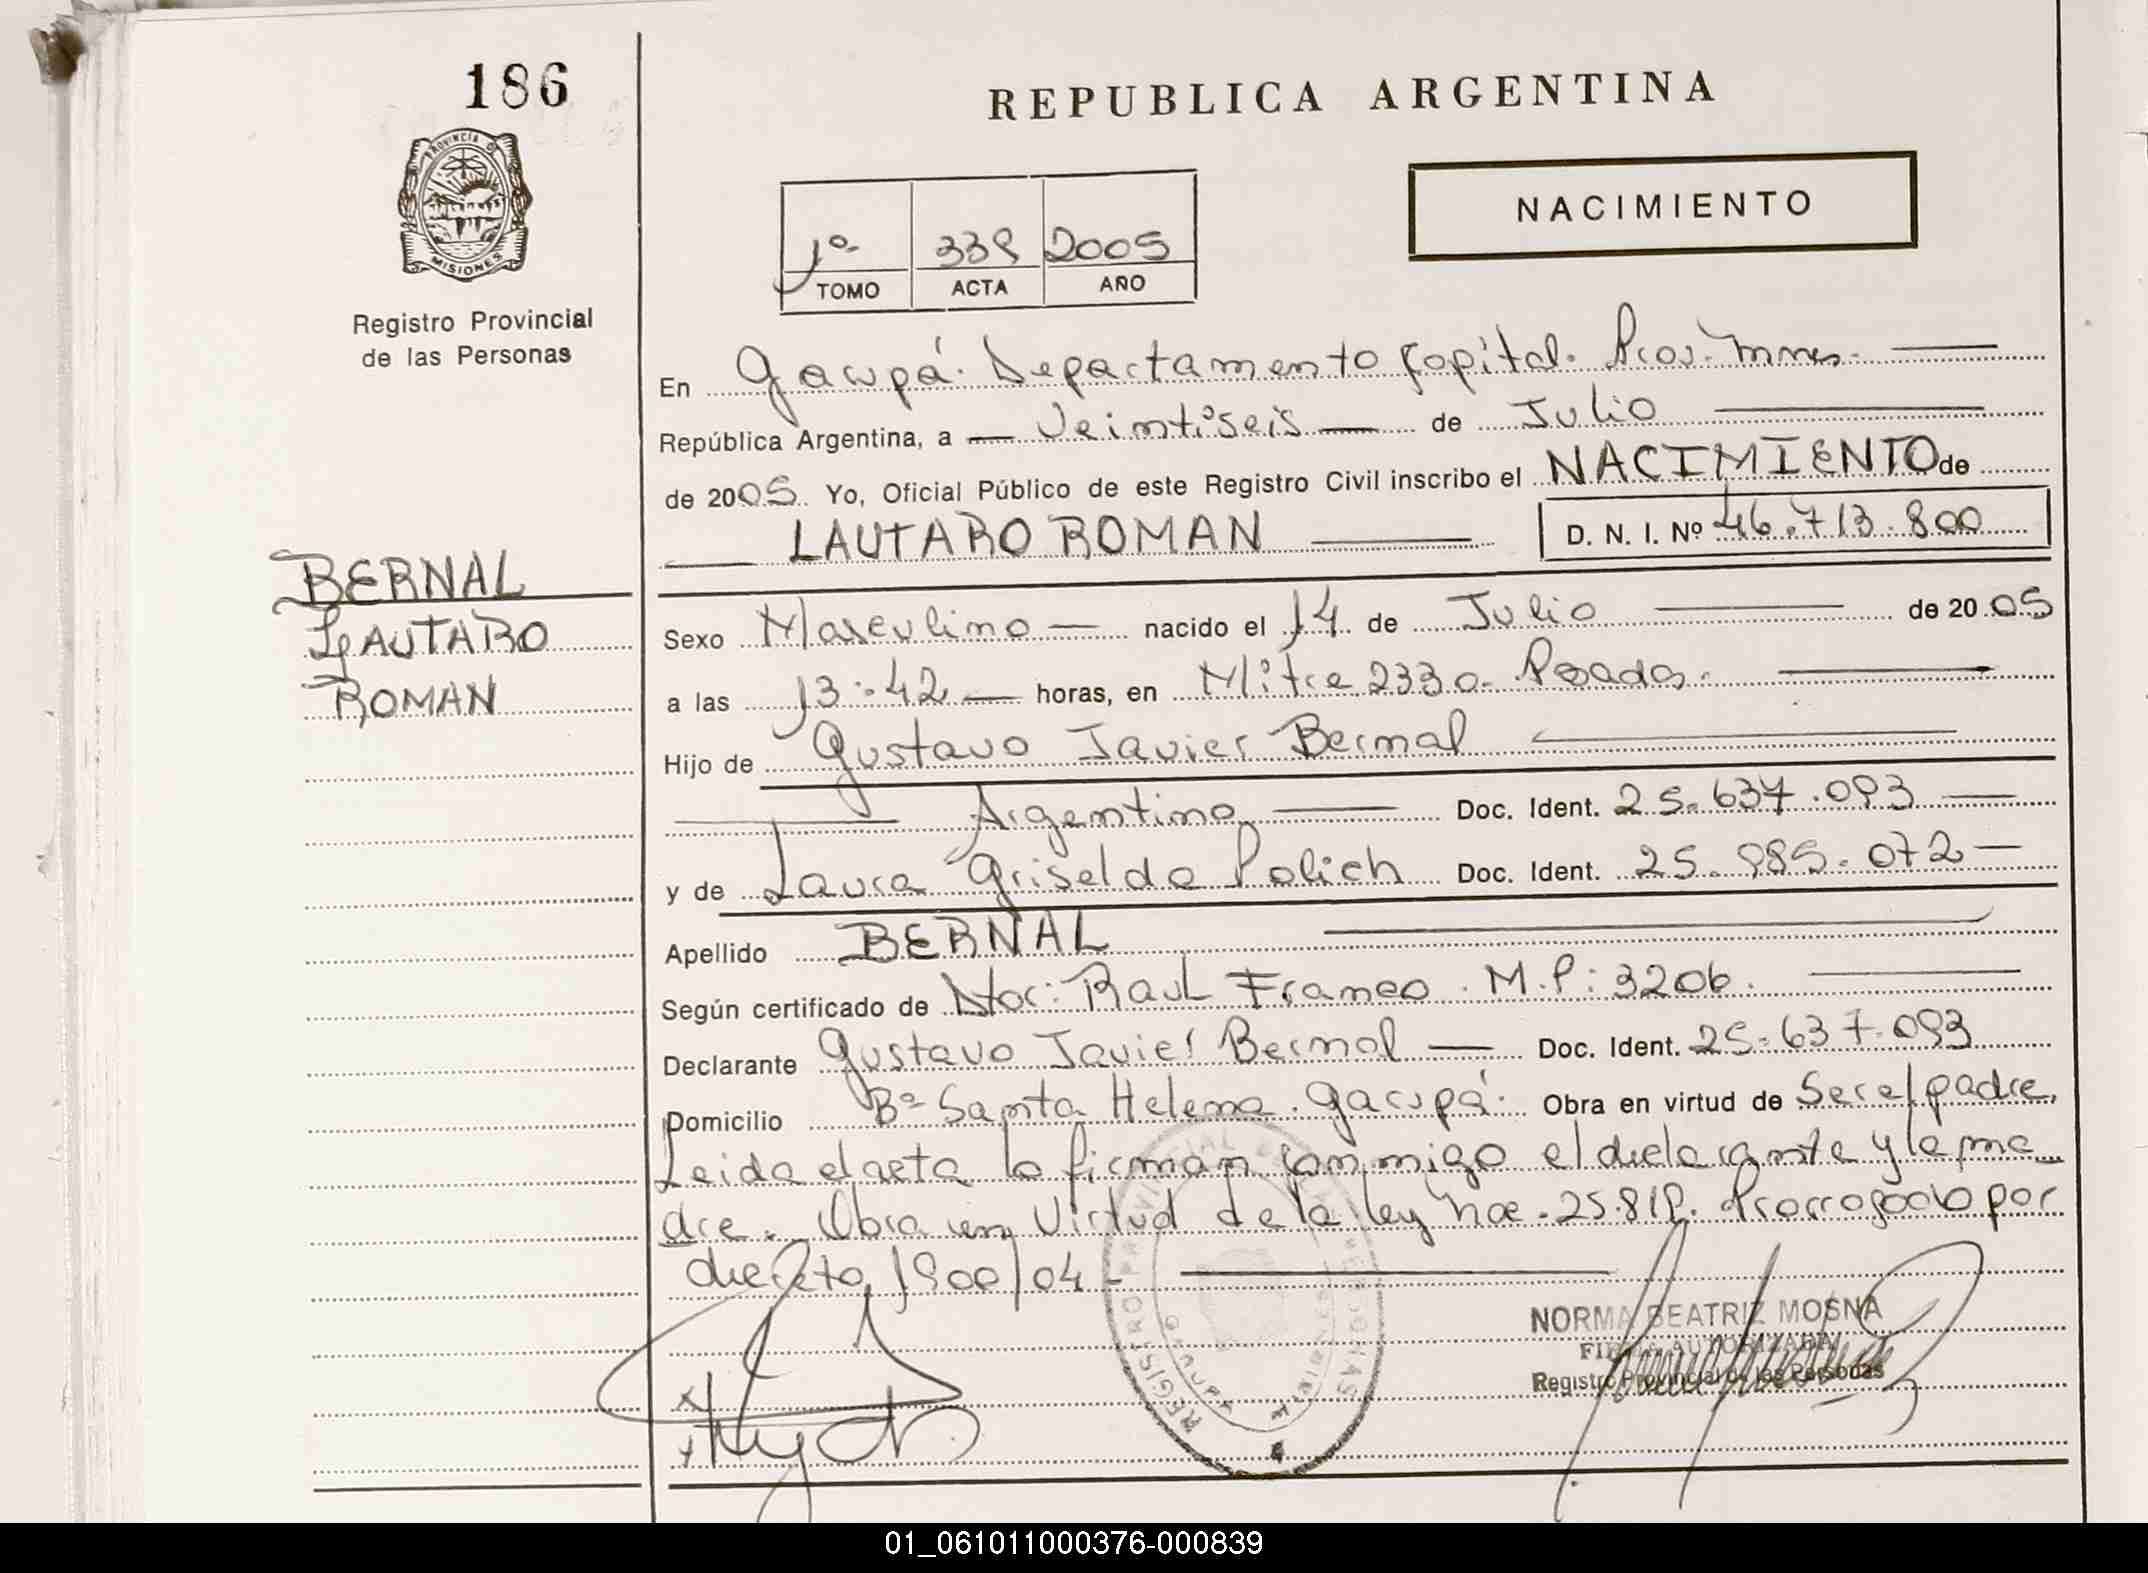 186
PROVINCIA DE
MISIONES
Registro Provincial
de las Personas
REPUBLICA ARGENTINA
NACIMIENTO
1º 339 2005
TOMO ACTA AÑO
En Garupá. Departamento Capital. Pcia. Mnes.
República Argentina, a Veintiseis de Julio
de 2005. Yo, Oficial Público de este Registro Civil inscribo el NACIMIENTO de
LAUTARO ROMAN D. N. I. Nº 46.713.800
BERNAL
LAUTARO
ROMAN
Sexo Masculino nacido el 14 de Julio de 2005
a las 13:42 horas, en Mitre 2330. Posadas.
Hijo de Gustavo Javier Bernal
Argentino Doc. Ident. 25.637.093
y de Laura Griselda Polich Doc. Ident. 25.985.072
Apellido BERNAL
Según certificado de Raul Franco. M.P: 3206.
Declarante Gustavo Javier Bernal Doc. Ident. 25.637.093
Domicilio Bº Santa Helena. Garupá. Obra en virtud de Ser el padre.
Leida el acta la firman conmigo el declarante y la ma
dre. Obra en Virtud de la ley 25.819. Prorrogado por
decreto 1900/04.-
REGISTRO PROVINCIAL PERSONAS
GARUPA MISIONES
NORMA BEATRIZ MOSNA
FIRMA AUTORIZADA
Registro Provincial de las Personas
01_061011000376-000839